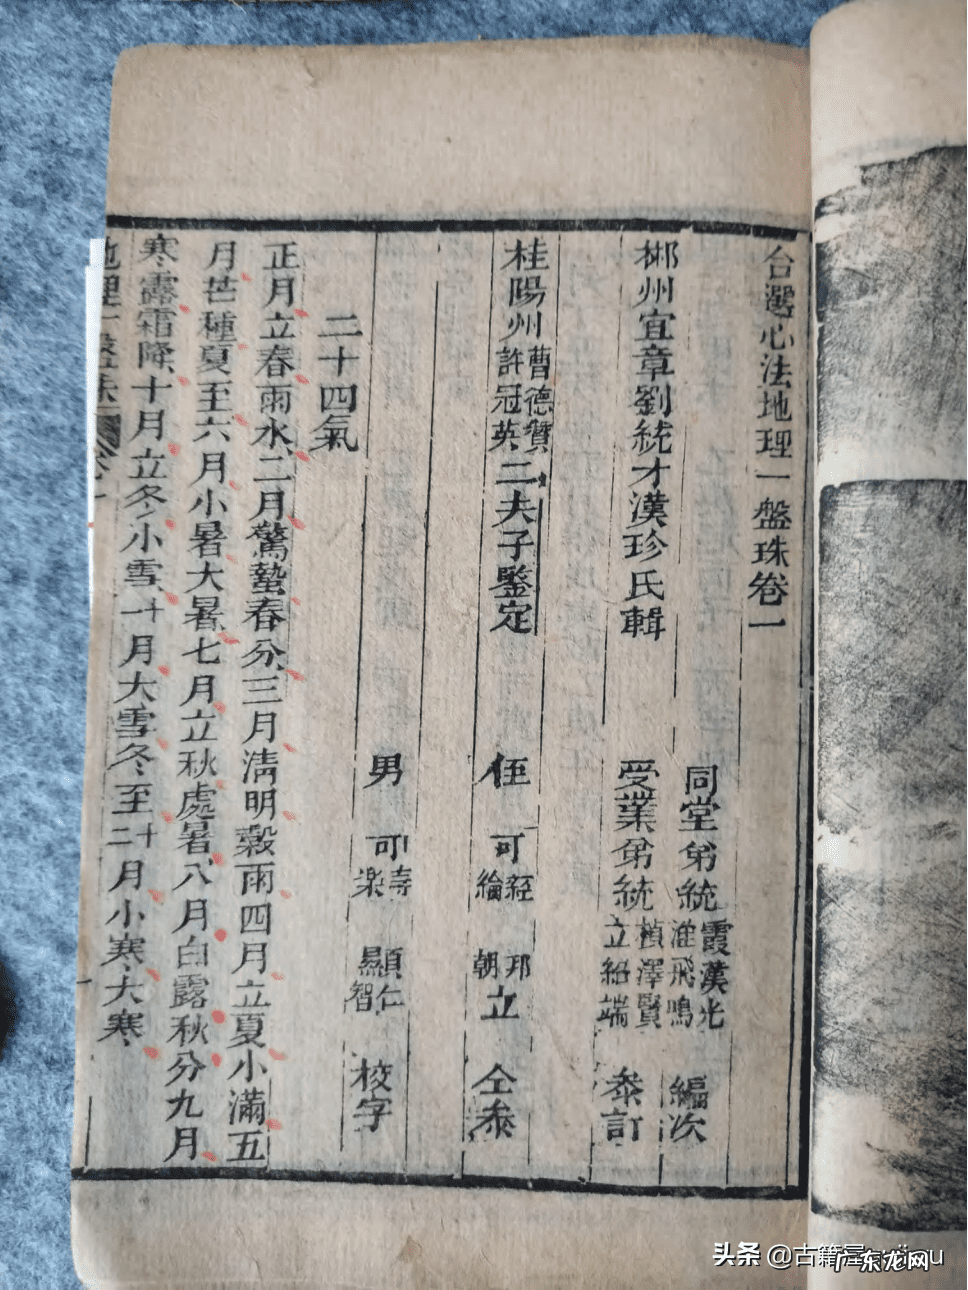 台選心法地理一盤珠卷一
同堂弟統霞漢光淮飛鳴編次
郴州宜章劉統才漢珍氏輯
受業弟統楨澤賢立紹端叅訂
桂陽州曹德贊許冠英二夫子鑒定
侄可經綸邦朝立仝叅
男可壽樂顯仁智校字
二十四氣
正月立春雨水二月驚蟄春分三月淸明穀雨四月立夏小滿五
月芒種夏至六月小暑大暑七月立秋處暑八月白露秋分九月
寒露霜降十月立冬小雪十一月大雪冬至十二月小寒大寒
頭条 @古籍屋
广东龙网